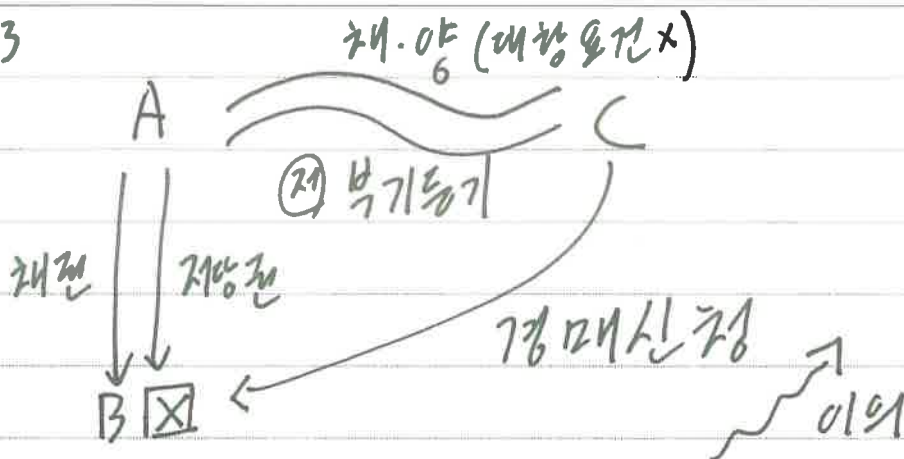 3
채.양 (대항요건x)
6
A
C
저 부기등기
채권
저당권
경매신청
B X
이의